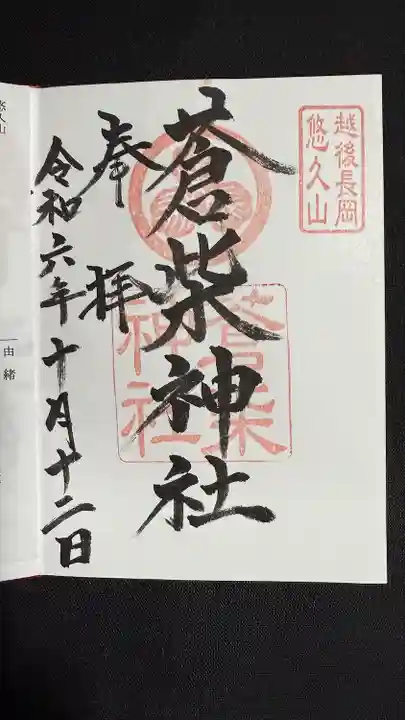 越後長岡
悠久山
蒼柴神社
蒼柴
神社
奉拝
令和六年十月十二日
悠久山
由緒